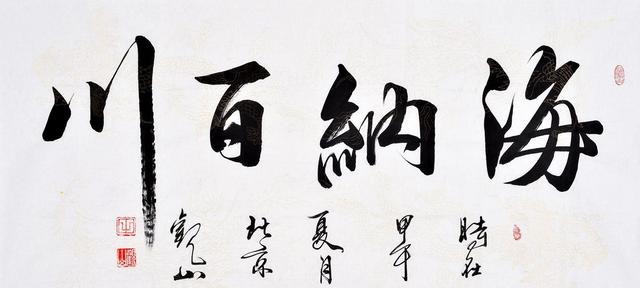 海納百川
時在
甲午
夏月
北京
觀山